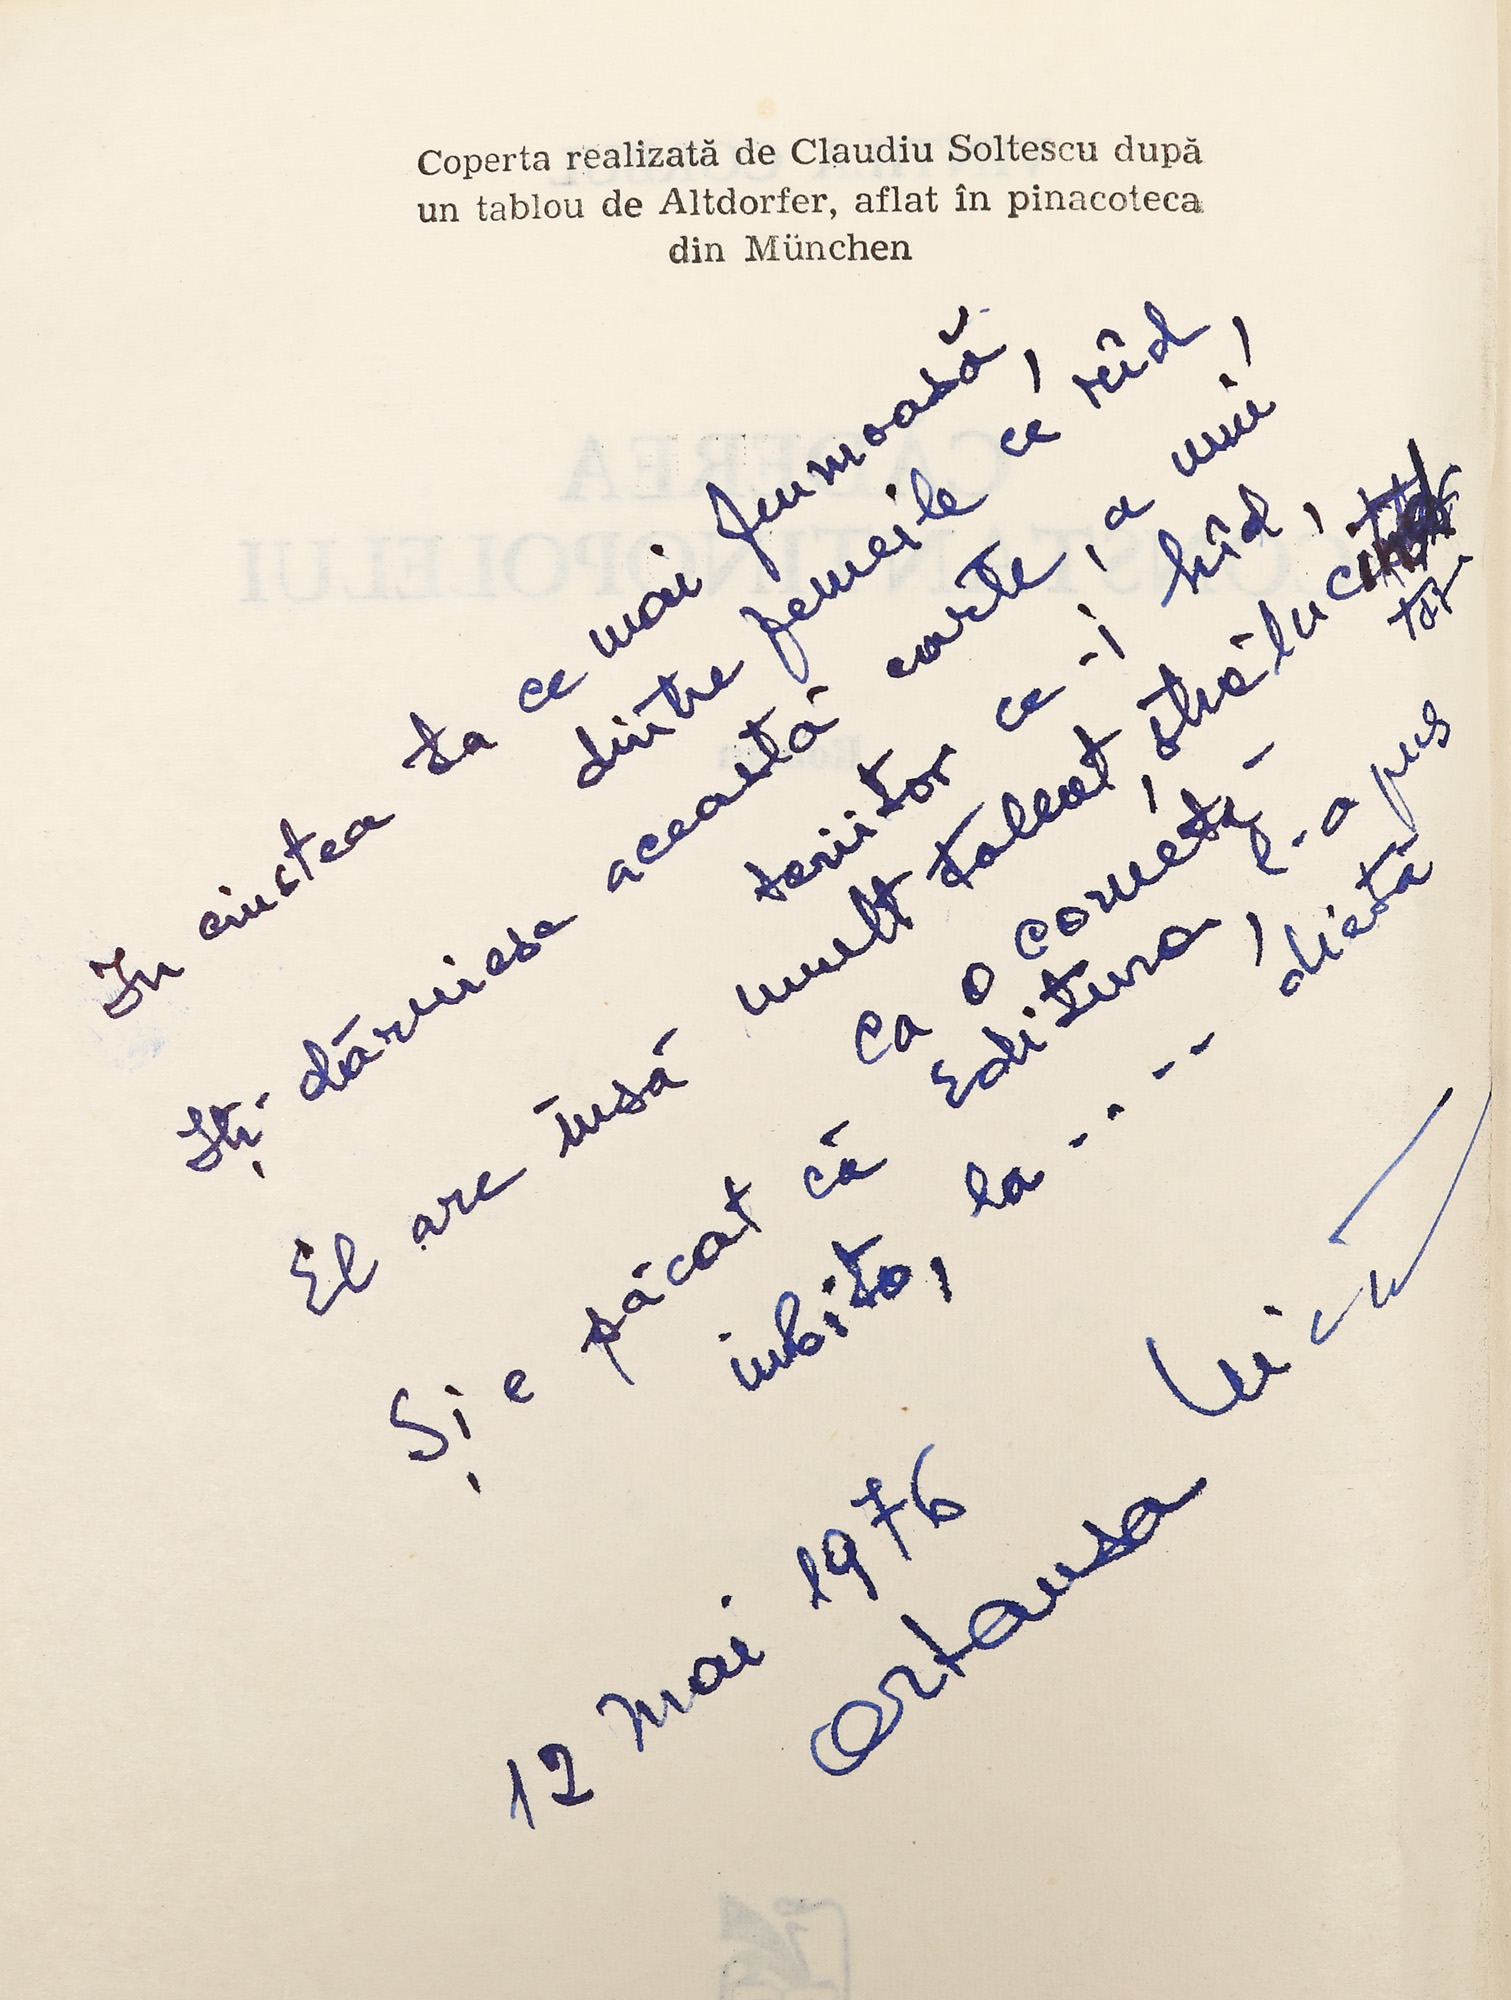 Coperta realizată de Claudiu Soltescu după
un tablou de Altdorfer, aflat în pinacoteca
din München
In cinstea ta ce mai frumoasă,
dintre femeile ce rîd,
Iți dăruiesc această carte, a unui
scriitor ce-i hîd,
El are însă mult talent, strălucitor
ca o cometă
Și e păcat că Editura l-a pus
iubito, la . . . - - dietă
12 Mai 1976
CĂDEREA
CONSTANTINOPOLELUI
Roman